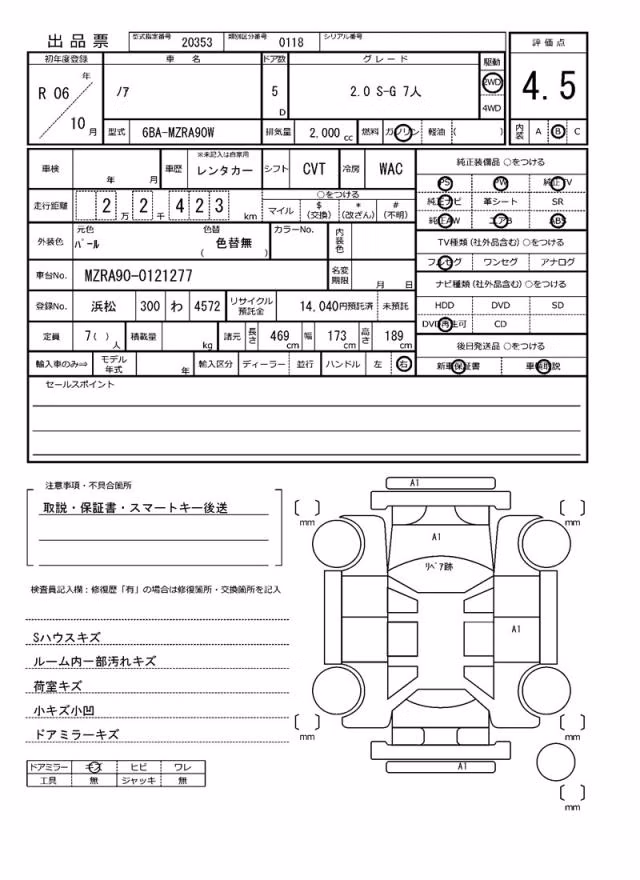 出品票 型式指定番号 20353 類別区分番号 0118 シリアル番号
評価点
4.5
内装 A B C
初年度登録 車名 ドア数 グレード 駆動
R 06 年 10 月 ノア 5 D 2.0 S-G 7人 2WD 4WD
型式 6BA-MZRA90W 排気量 2,000 cc 燃料 ガソリン 軽油 ( )
車検 年 月 車歴 ※未記入は自家用 レンタカー シフト CVT 冷房 WAC
走行距離 2 万 2 千 4 2 3 km
○をつける
マイル $(交換) *(改ざん) #(不明)
外装色 元色 パール 色替 ( 色替無 ) カラーNo. 内装色
車台No. MZRA90-0121277 名変期限 月 日
登録No. 浜松 300 わ 4572 リサイクル預託金 14,040円預託済 未預託
定員 7( )人 積載量 kg 諸元 長さ 469 cm 幅 173 cm 高さ 189 cm
輸入車のみ⇒ モデル年式 年 輸入区分 ディーラー 並行 ハンドル 左 右
純正装備品 ○をつける
PS PW 純正TV
純正ナビ 革シート SR
純正AW エアB ABS
TV種類(社外品含む)○をつける
フルセグ ワンセグ アナログ
ナビ種類(社外品含む)○をつける
HDD DVD SD
DVD再生可 CD
後日発送品 ○をつける
新車保証書 車輌取説
セールスポイント
注意事項・不具合箇所
取説・保証書・スマートキー後送
検査員記入欄：修復歴「有」の場合は修復箇所・交換箇所を記入
Sハウスキズ
ルーム内一部汚れキズ
荷室キズ
小キズ小凹
ドアミラーキズ
ドアミラー キズ ヒビ ワレ
工具 無 ジャッキ 無
A1
mm
mm
A1
リペア跡
A1
mm
mm
A1
mm